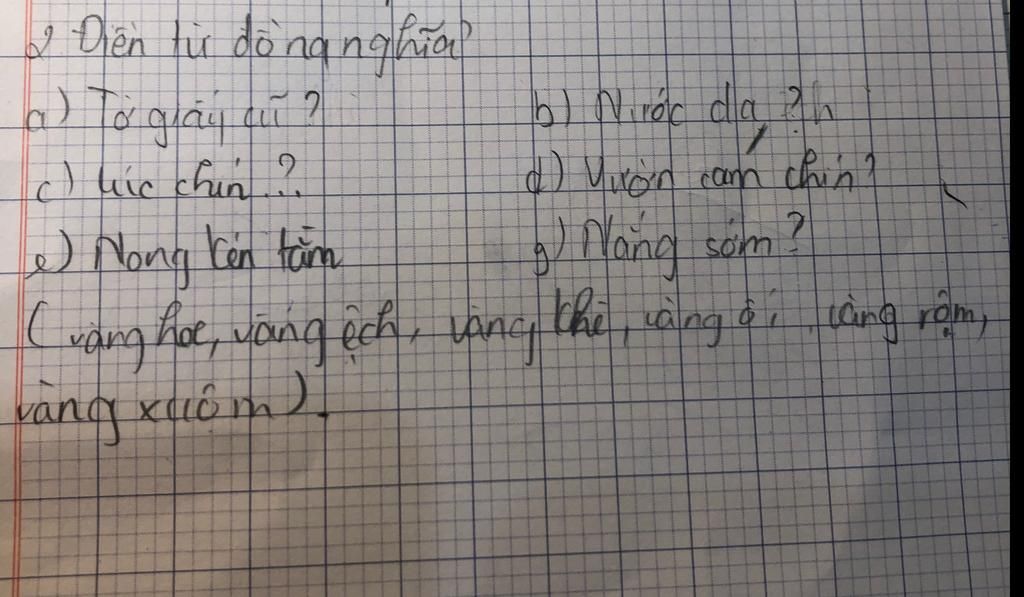 2 Điền từ đồng nghĩa
a) Tờ giấy cũ ? b) Nước da ?
c) lúc chín ..? d) Vườn cam chín ?
e) Nong kén tằm g) Nắng sớm ?
( vàng hoe, vàng ệch, vàng khè, vàng ối, vàng rộm,
vàng xuộm ).